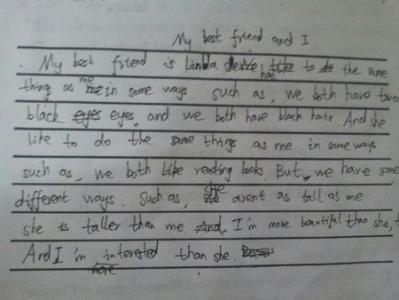 My best friend and I
My best friend is Linda has to the same
thing as me in some ways. such as, we both have two
black eyes, and we both have black hair. And she
like to do the same things as me in some ways
such as, we both like reading books. But, we have some
different ways. Such as, she arent as tall as me
she is taller than me. I'm more beautiful than she,
And I'm interested than she.